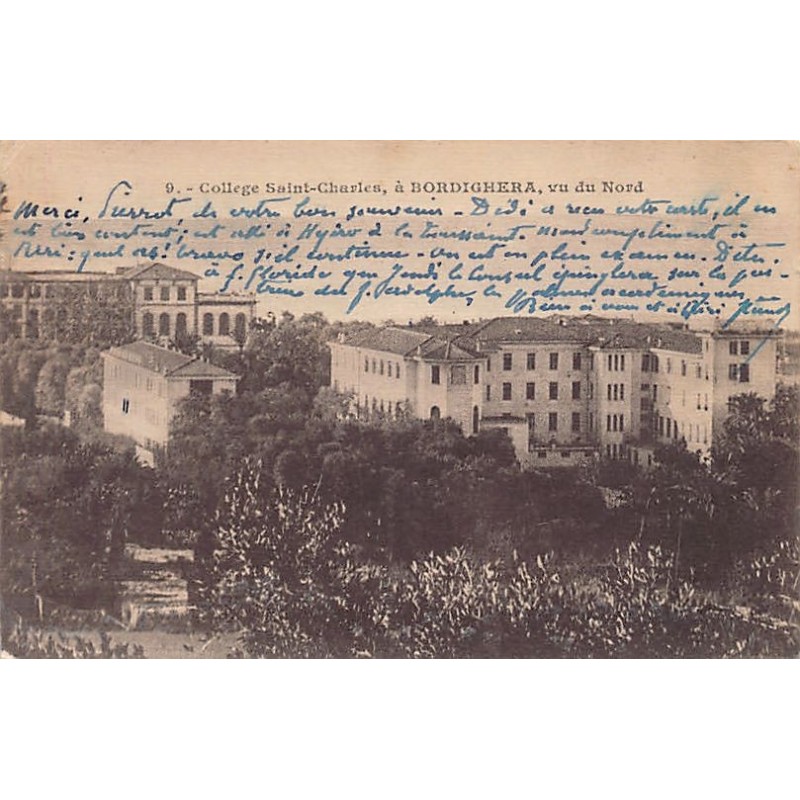 9. - College Saint-Charles, à BORDIGHERA, vu du Nord
Merci, Pierrot, de votre bon souvenir - Dédé a reçu votre carte, il en
est très content; est allé à Hyères à la Toussaint. mes compliments à
Riri: quel as! bravo s'il continue - on est en plein examen. Dites
à f. Floride que Jeudi le Conseil épinglera sur la poi-
trine du f. Adolphe, les palmes académiques
Bien à vous et à Riri